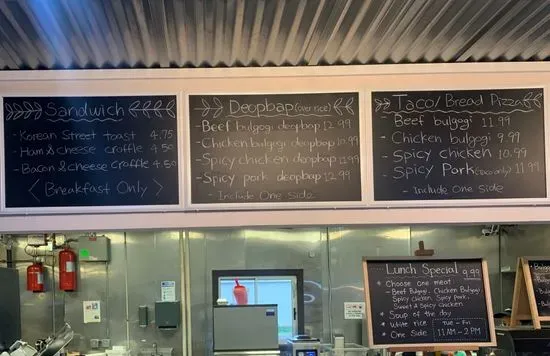 Sandwich
- Korean Street toast 4.75
- Ham & cheese croffle 4.50
- Bacon & cheese croffle 4.50
< Breakfast Only >
Deopbap (over rice)
- Beef bulgogi deopbap 12.99
- Chicken bulgogi deopbap
- Spicy chicken deopbap 11.99
- Spicy pork deopbap 12.99
- Include One side
Taco/ Bread Pizza
Beef bulgogi 11.99
- Chicken bulgogi 9.99
- Spicy chicken 10.99
- Spicy Pork (taco only) 11.99
- Include One side
Lunch Special 9.99
* Choose one meat
- Beef Bulgogi, Chicken Bulgogi
Spicy Chicken, Spicy Pork,
Sweet & Spicy Chicken
* Soup of the day
* White rice
* One Side
Tue - Fri
11 AM - 2 PM